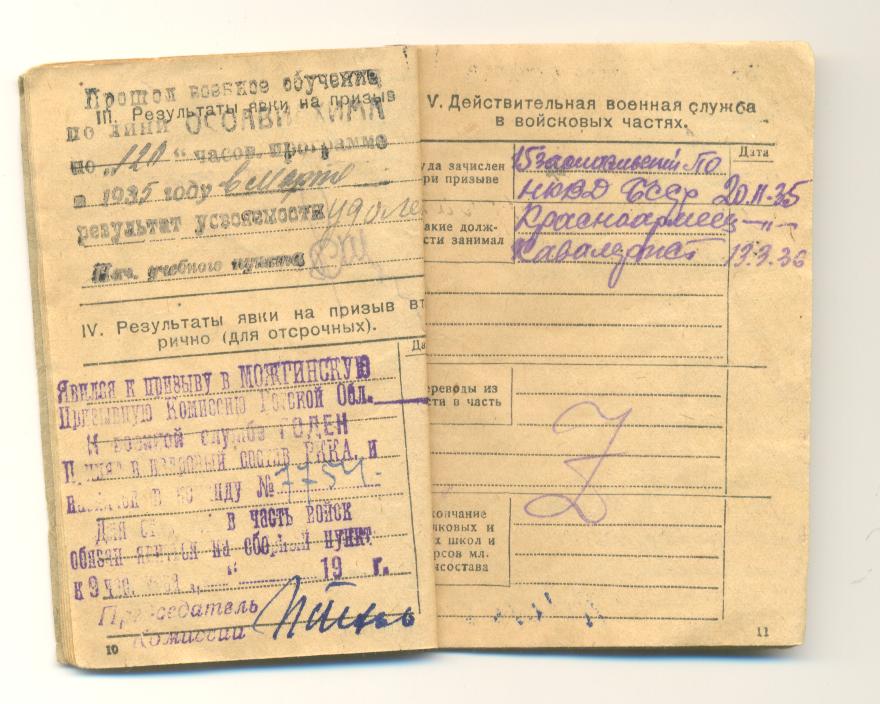 Прошел военное обучение
III. Результаты явки на призыв
по линии ОСОАВИАХИМА
по „120“ часов. программе
в 1935 году в Марте
результат усвояемости
Нач. учебного пункта
IV. Результаты явки на призыв вт
рично (для отсрочных).
Да
Явился к призыву в МОЖГИНСКУЮ
Призывную Комиссию Обл.
К военной службе ГОДЕН
в состав РККА, и
в команду №
Для в часть войск
обязан явиться на сборный пункт
к 9 час. „ “ 19 г.
Председатель
Комиссии
10
V. Действительная военная служба
в войсковых частях.
Дата
уда зачислен
ри призыве
15 По
НКВД БССР 20.11.35
акие долж-
сти занимал
Красноармеец —„—
Кавалерист 13.3.36
ереводы из
сти в часть
Z
кончание
лковых и
х школ и
рсов мл.
чсостава
11